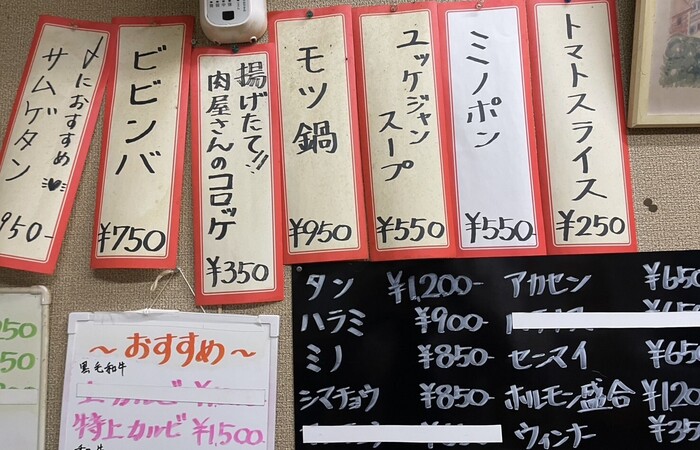 トマトスライス
¥250
ミノポン
¥550
ユッケジャン
スープ
¥550
モツ鍋
¥950
揚げたて!!
肉屋さんのコロッケ
¥350
ビビンバ
¥750
〆におすすめ
サムゲタン
950-
タン ¥1,200-
ハラミ ¥900-
ミノ ¥850-
シマチョウ ¥850-
アカセン ¥650
センマイ ¥650
ホルモン盛合 ¥120
ウィンナー ¥35
~おすすめ~
黒毛和牛
特上カルビ ¥1,500-
250
350